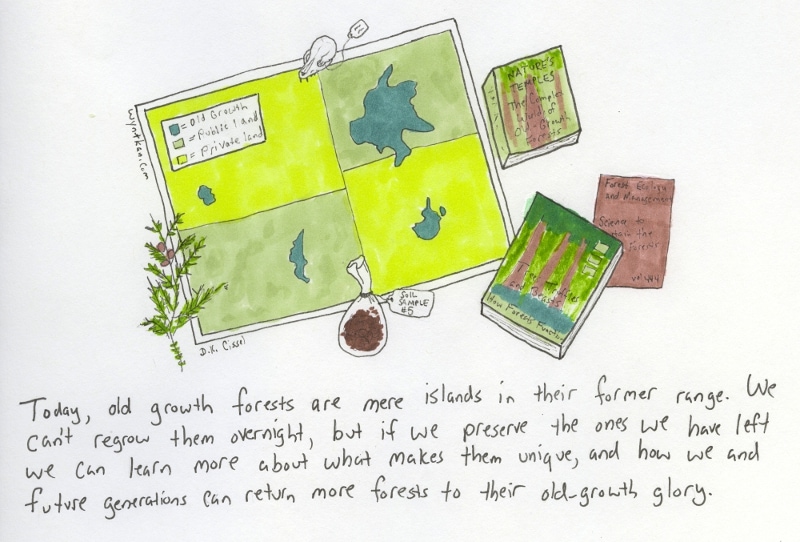 wyntkao.com
= Old Growth
= Public land
= Private land
SOIL
SAMPLE
#5
D.K. Cissel
NATURE'S
TEMPLES
The Complex
World of
Old-Growth
Forests
Forest Ecology
and Management
Science to
the
Forests
vol 494
and Beasts
How Forests Function
Today, old growth forests are mere islands in their former range. We
can't regrow them overnight, but if we preserve the ones we have left
we can learn more about what makes them unique, and how we and
future generations can return more forests to their old-growth glory.